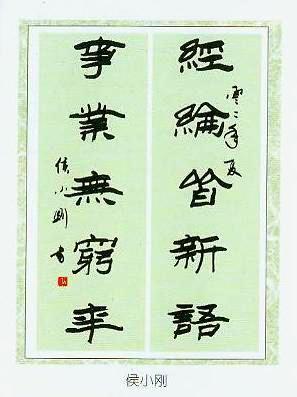 經綸皆新語
零二年夏
事業無窮年
侯小剛書
侯小刚